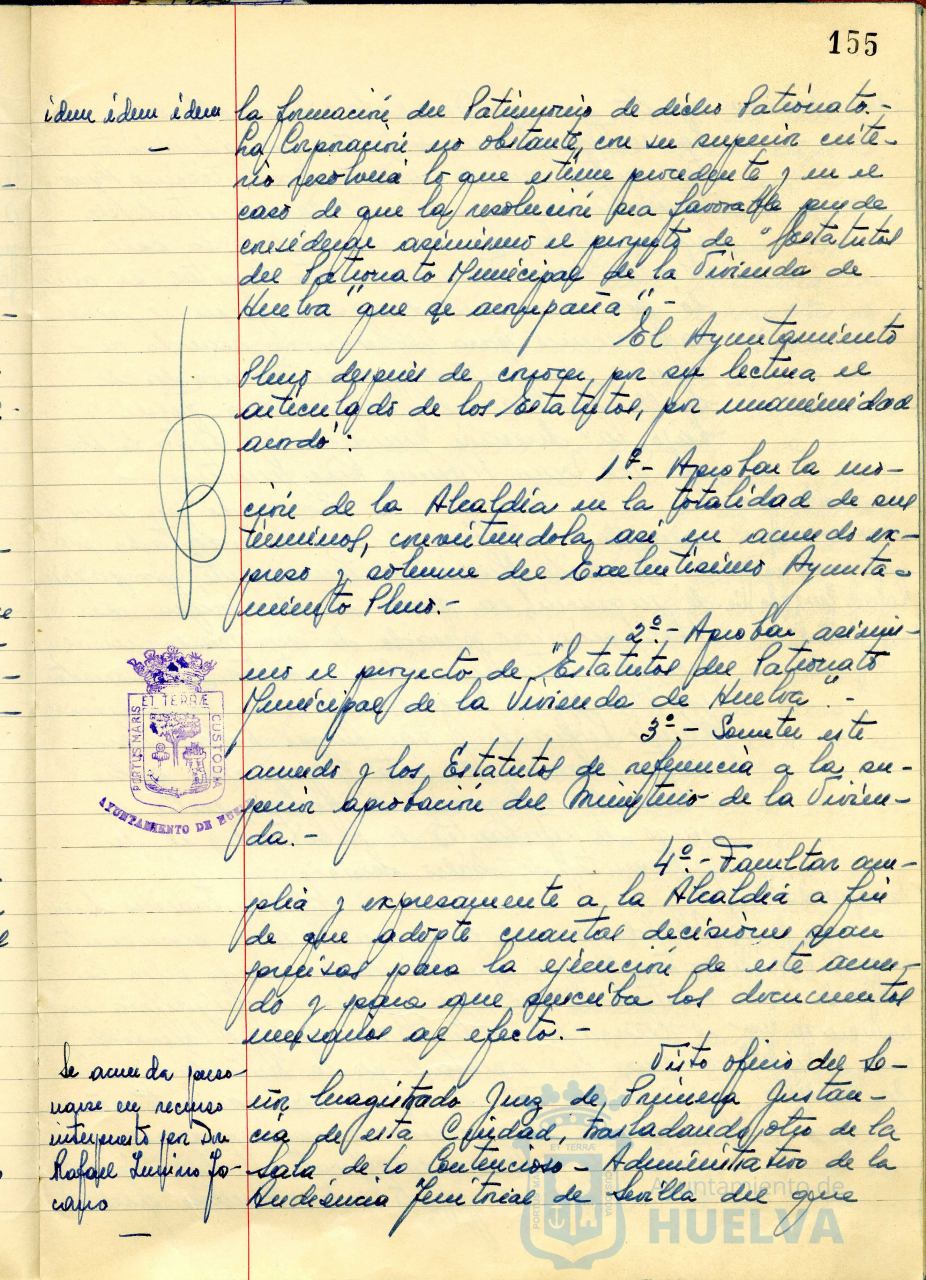 155
idem idem idem
la formación del Patrimonio de dicho Patronato.-
La Corporación no obstante, con su superior crite-
rio resolverá lo que estime procedente y en el
caso de que la resolución sea favorable puede
considerar asimismo el proyecto de "Estatutos
del Patronato Municipal de la Vivienda de
Huelva "que se acompaña".-
El Ayuntamiento
Pleno después de conocer, por su lectura el
articulado de los Estatutos, por unanimidad
acordó:
1º.- Aprobar la mo-
ción de la Alcaldía en la totalidad de sus
términos, convirtiendola así en acuerdo ex-
preso y solemne del Excelentísimo Ayunta-
miento Pleno.-
2º.- Aprobar asimis-
mo el proyecto de "Estatutos del Patronato
Municipal de la Vivienda de Huelva".-
3º.- Someter este
acuerdo y los Estatutos de referencia a la su-
perior aprobación del Ministerio de la Vivien-
da.-
4º.- Facultar am-
plia y expresamente a la Alcaldía a fin
de que adopte cuantas decisiones sean
precisas para la ejecución de este acuer-
do y para que suscriba los documentos
necesarios al efecto.-
PORTUS MARIS ET TERRÆ CUSTODIA
AYUNTAMIENTO DE HUE
Se acuerda perso-
narse en recurso
interpuesto por Don
Rafael
Visto oficio del Se-
ñor Magistrado Juez de Primera Instan-
cia de esta Ciudad, trasladando otro de la
Sala de lo Contencioso-Administrativo de la
Audiencia Territorial de Sevilla del que
PORTUS MARIS ET TERRÆ CUSTODIA
Ayuntamiento de
HUELVA